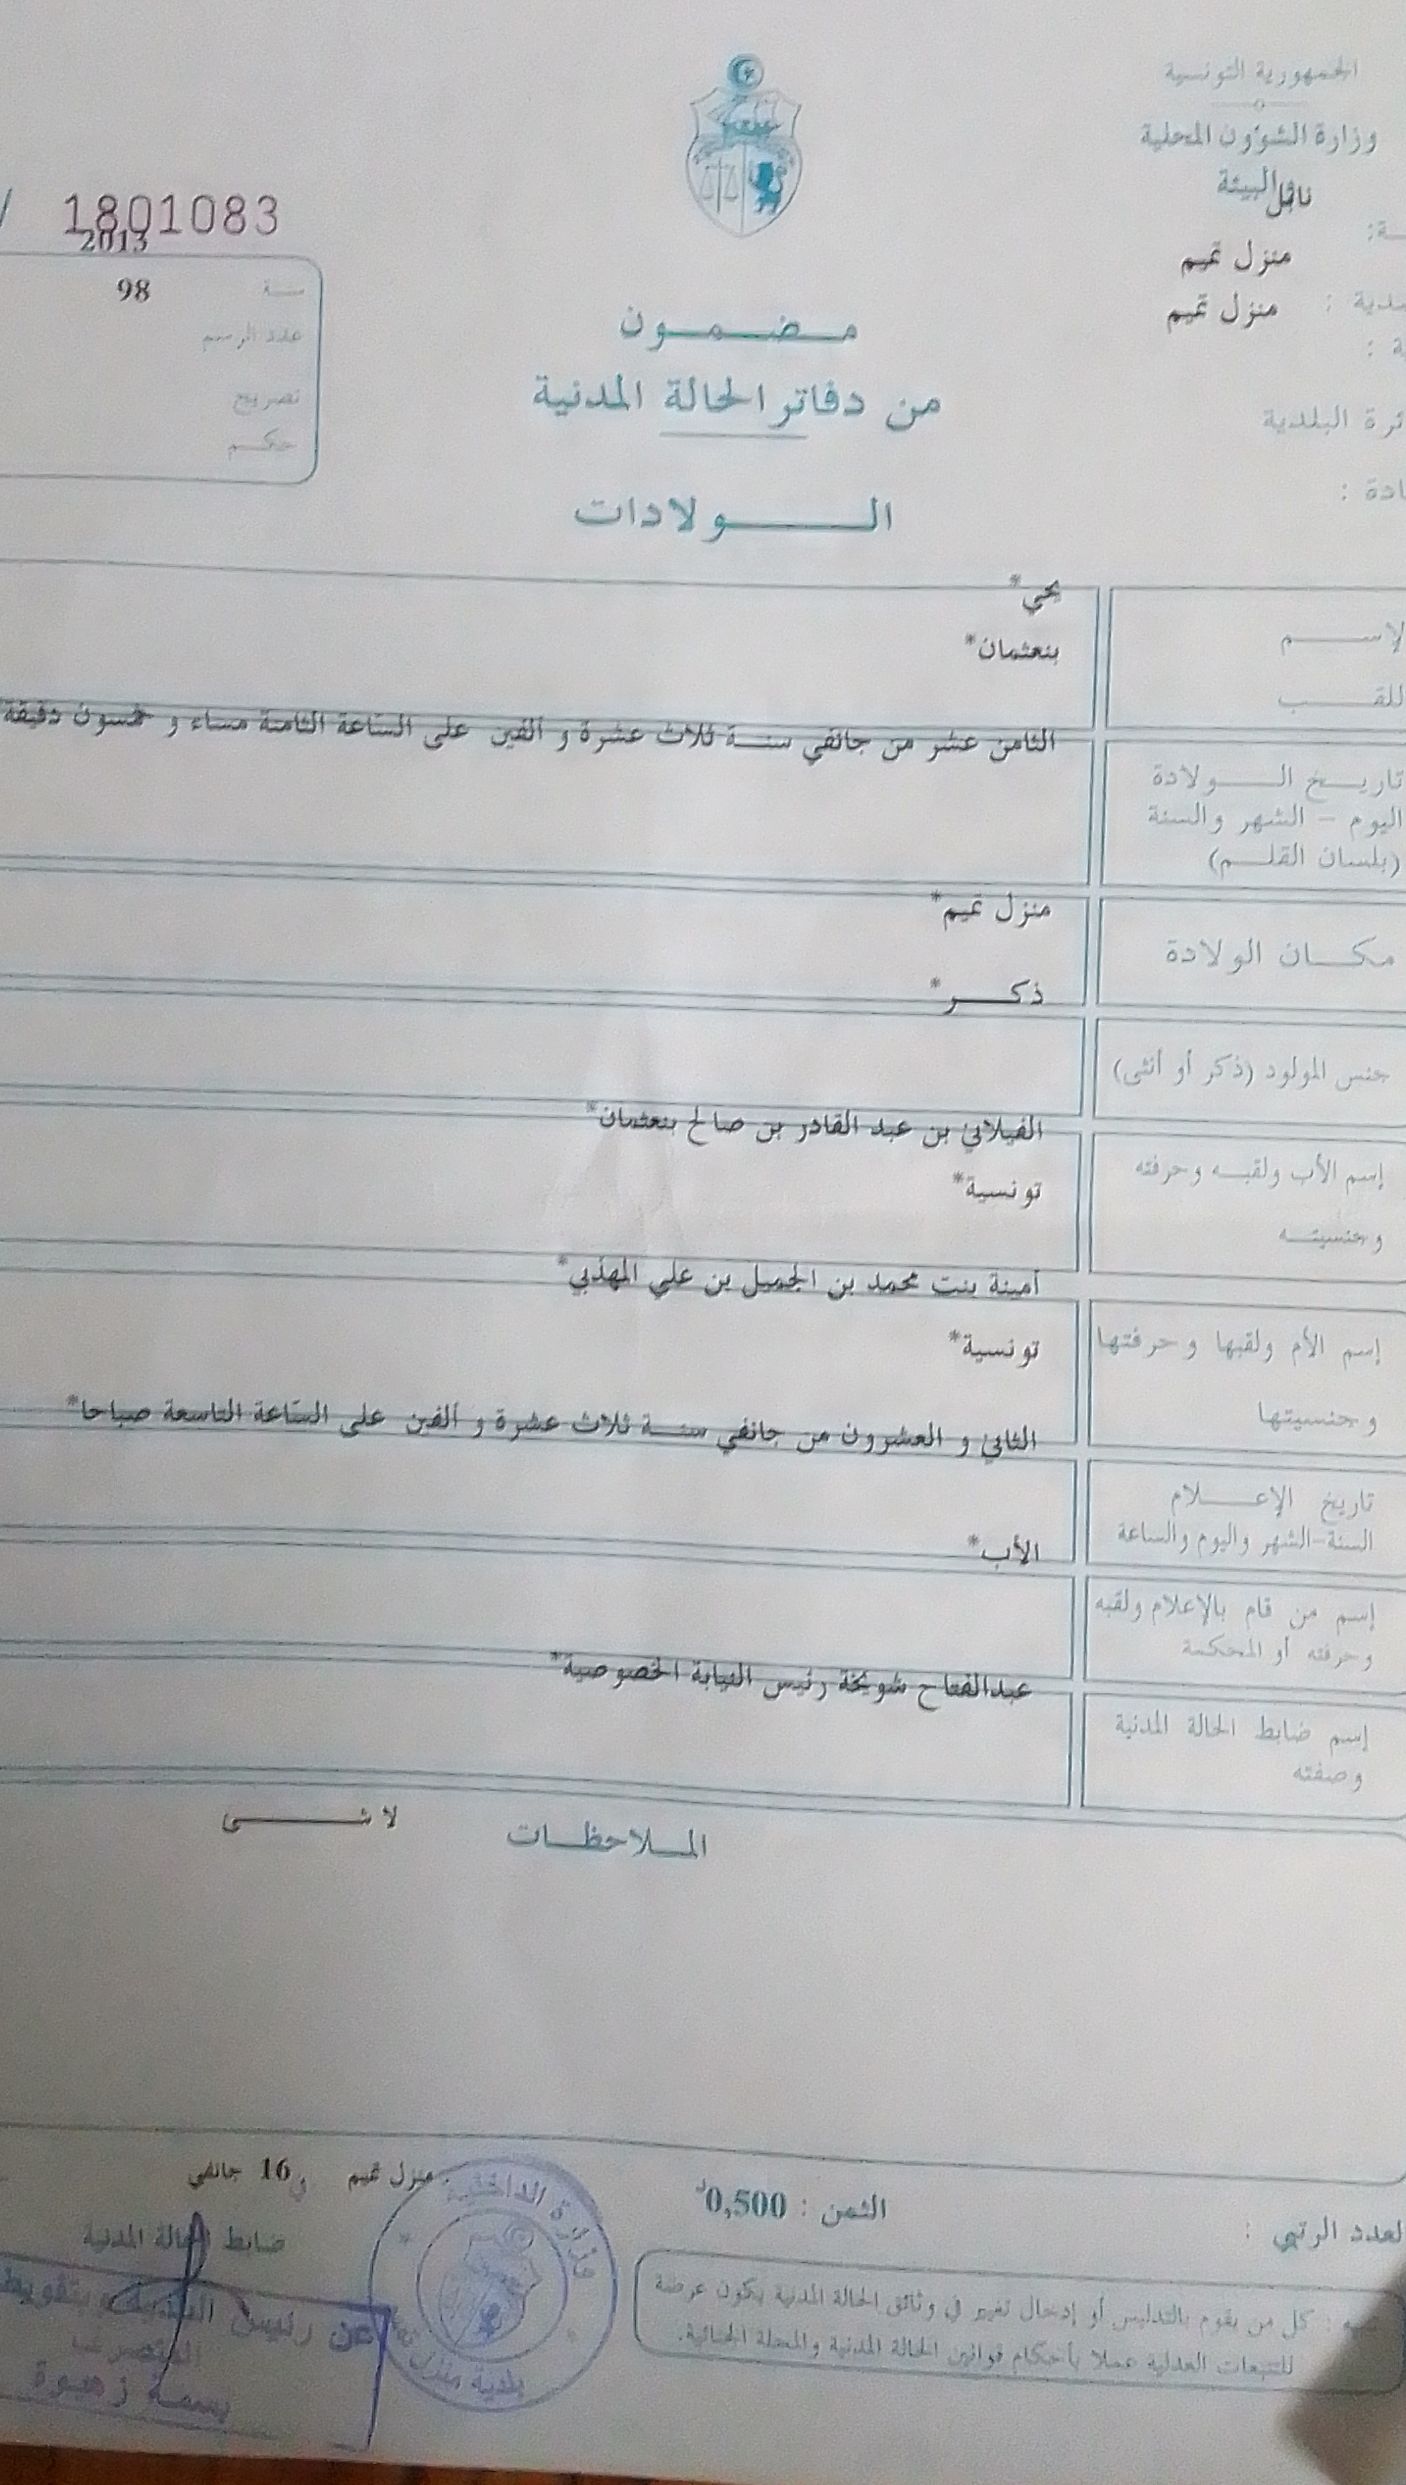 الجمهورية التونسية
وزارة الشؤون المحلية
والبيئة
نابل
منزل تميم
منزل تميم
ـدية :
ئرة البلدية
ادة :
1801083
2013
سـنة 98
عدد الرسم
تصريح
حكم
مـضـمـون
من دفاتر الحالة المدنية
الـولادات
لإسـم
يحي*
للقـب
بنعثمان*
تاريـخ الـولادة
اليوم – الشهر والسنة
(بلسان القلـم)
الثامن عشر من جانفي سنـة ثلاث عشرة و ألفين على الساعة الثامنة مساء و خمسون دقيقة
مكـان الولادة
منزل تميم*
جنس المولود (ذكر أو أنثى)
ذكـر*
إسم الأب ولقبـه وحرفته
وجنسيتـه
الفيلاني بن عبد القادر بن صالح بنعثمان*
تونسية*
إسم الأم ولقبها وحرفتها
وجنسيتها
أمينة بنت محمد بن الجميل بن علي المهذبي*
تونسية*
تاريخ الإعـلام
السنة-الشهر واليوم والساعة
الثاني و العشرون من جانفي سنـة ثلاث عشرة و ألفين على الساعة التاسعة صباحا*
إسم من قام بالإعلام ولقبه
وحرفته أو المحكمة
الأب*
إسم ضابط الحالة المدنية
وصفته
عبدالفتاح شويخة رئيس النيابة الخصوصية*
المـلاحظـات
لا شـى
منزل تميم في 16 جانفي
ضابط الحالة المدنية
الثمن : 0,500د
لعدد الرتبي :
: كل من يقوم بالتدليس أو إدخال تغيير في وثائق الحالة المدنية يكون عرضة
للتتبعات العدلية عملا بأحكام قوانين الحالة المدنية والمجلة الجنائية.
وزارة الداخلية
بلدية منزل تميم
عن رئيس
المتصرف
بسمة زهيوة